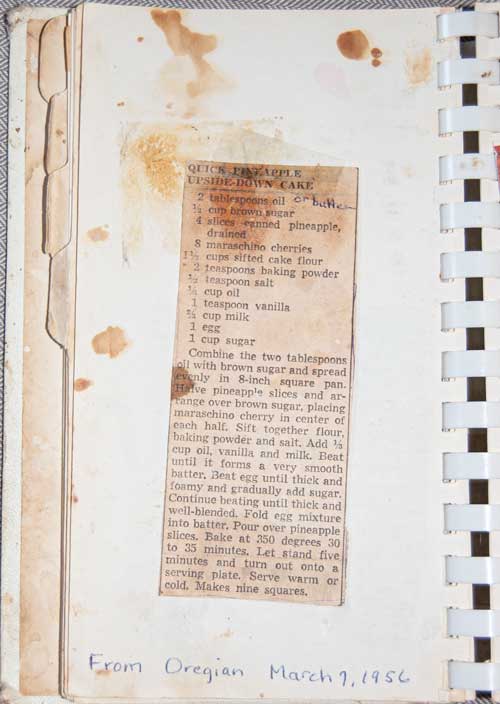 QUICK PINEAPPLE
UPSIDE-DOWN CAKE
2 tablespoons oil or butter
½ cup brown sugar
4 slices canned pineapple,
drained
8 maraschino cherries
1½ cups sifted cake flour
2 teaspoons baking powder
½ teaspoon salt
cup oil
1 teaspoon vanilla
cup milk
1 egg
1 cup sugar
Combine the two tablespoons
oil with brown sugar and spread
evenly in 8-inch square pan.
Halve pineapple slices and ar-
range over brown sugar, placing
maraschino cherry in center of
each half. Sift together flour,
baking powder and salt. Add
cup oil, vanilla and milk. Beat
until it forms a very smooth
batter. Beat egg until thick and
foamy and gradually add sugar.
Continue beating until thick and
well-blended. Fold egg mixture
into batter. Pour over pineapple
slices. Bake at 350 degrees 30
to 35 minutes. Let stand five
minutes and turn out onto a
serving plate. Serve warm or
cold. Makes nine squares.
From Oregian March 9, 1956